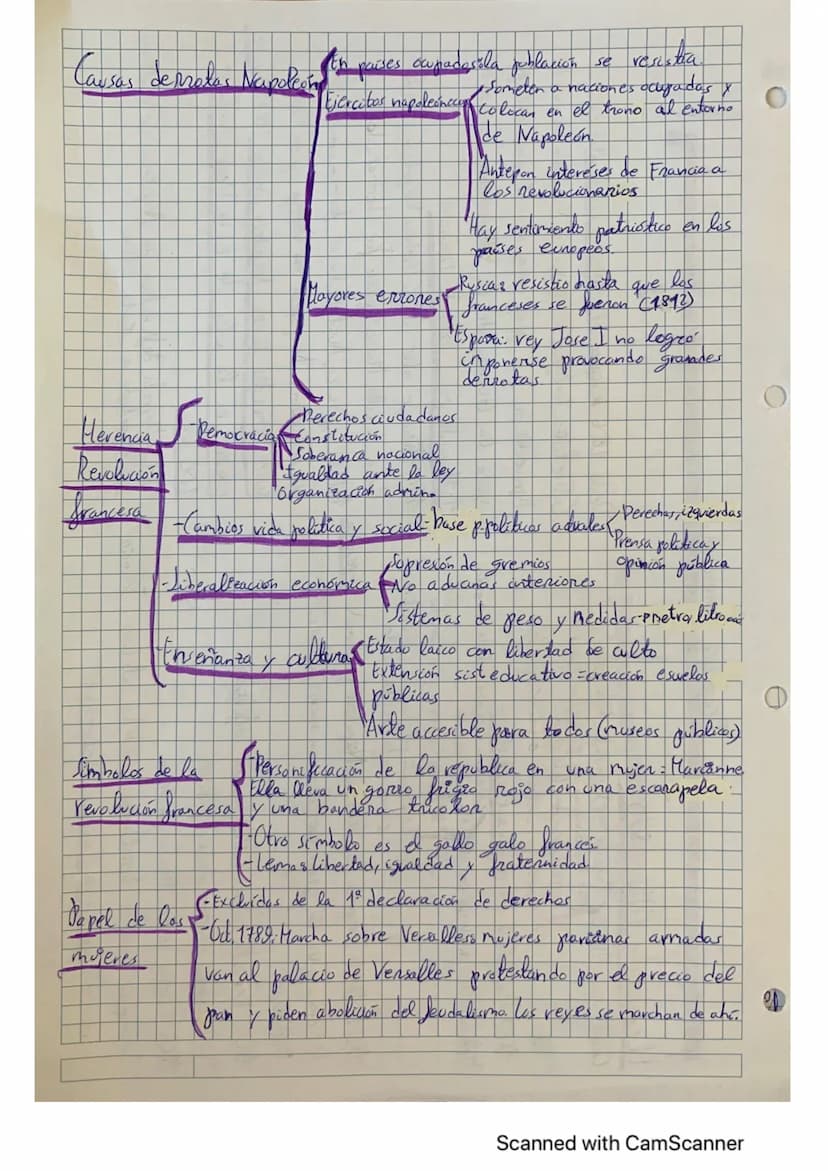 Causas derrotas Napoleón
En países ocupados: la población se resistía.
Ejércitos napoleónicos
Someten a naciones ocupadas y
colocan en el trono al entorno
de Napoleón.
Antepon intereses de Francia a
los revolucionarios
Hay sentimiento patriótico en los
países europeos.
Mayores errores
Rusia: resistio hasta que los
franceses se fueron (1812)
España: rey Jose I no logró
imponerse provocando grandes
derrotas
Herencia
Revolución
francesa
-Democracia
Derechos ciudadanos
Constitución
Soberanía nacional
Igualdad ante la ley
Organización admin.
-Cambios vida política y social= base p.políticas actuales
Derechas, izquierdas
Prensa política y
opinión pública
-Liberalización económica
Supresión de gremios
No aduanas interiores
Sistemas de peso y medidas→metro, litro
Enseñanza y cultura
Estado laico con libertad de culto
Extensión sist educativo=creación esuelas
públicas
Arte accesible para todos (museos públicos)
Símbolos de la
revolución francesa
-Personificación de la república en una mujer= Marianne
Ella lleva un gorro frigio rojo con una escarapela
y una bandera tricolor
-Otro símbolo es el gallo galo francés
-Lema: libertad, igualdad y fraternidad
Papel de las
mujeres
-Excluidas de la 1ª declaración de derechos
-Oct, 1789: Marcha sobre Versalles: mujeres parisinas armadas
van al palacio de Versalles protestando por el precio del
pan y piden abolición del feudalismo. Los reyes se marchan de ahí.
Scanned with CamScanner